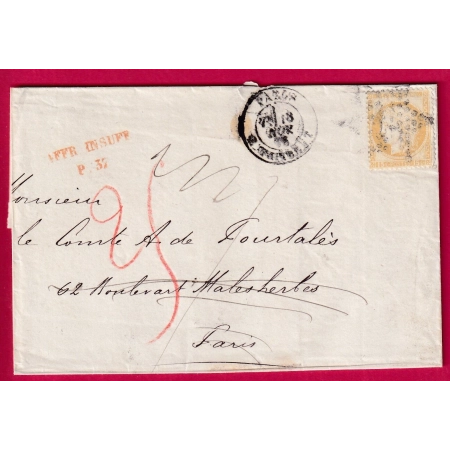 AFFR INSUFF
P 37
PARIS
18
NOV
25
Monsieur
le Comte A. de Pourtalès
62 Boulevart Malesherbes
Paris